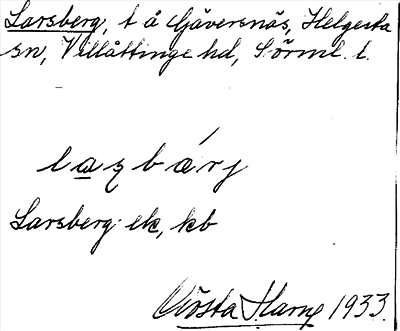 Larsberg, t å Gäversnäs, Helgesta
sn, Villåttinge hd, Sörml. l.
lazbárj
Larsberg ek, kb
Gösta Harne 1933.